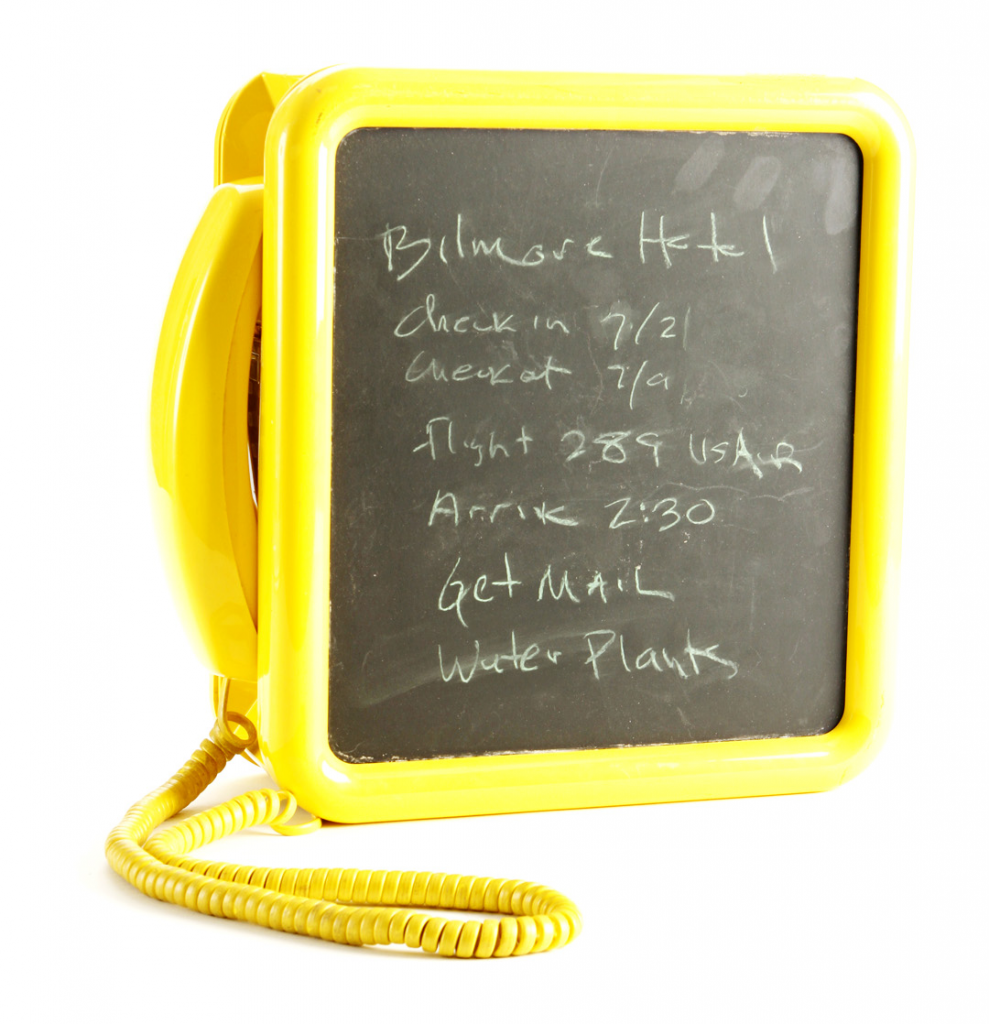 Bilmore Hotel
Check in 7/21
Check ot 7/9
Flight 289 USAIR
Arrive 2:30
Get MAIL
Water Plants